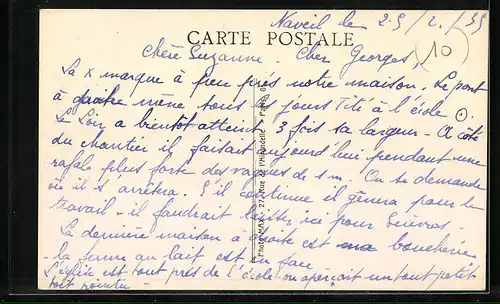 Naveil le 25/2/39
CARTE POSTALE
(10)
Chère Suzanne. Cher Georges,
La x marque à peu près notre maison. Le pont
à gauche mène tous les jours Titi à l'école ⊙.
Le Loir a bientôt atteint 3 fois sa largeur - A côté
du chantier il faisait aujourd'hui pendant une
rafale plus forte des vagues de 1 m. On se demande
où il s'arrêtera. S'il continue il gênera pour le
travail - il faudrait
La dernière maison à droite est ma boucherie
la ferme au lait est en face
L'église est tout près de l'école on aperçoit un tout petit
toit pointu -
Photo MAX - 27, Rue de l'Hirondelle - Paris 6e